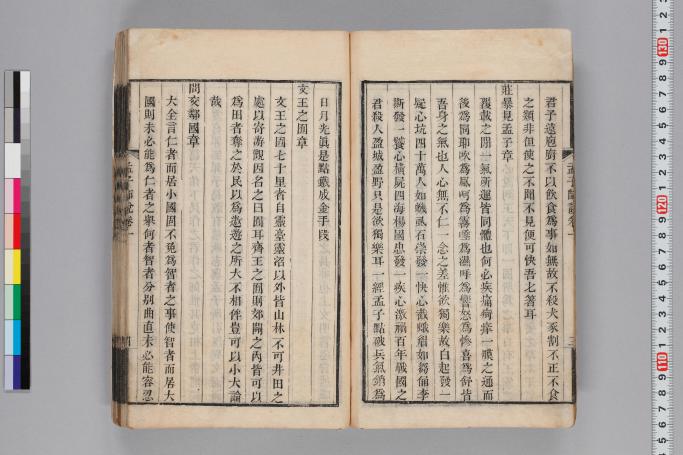 君子遠庖廚不以飲食爲事如無故不殺犬豕割不正不食
之類非但使之不聞不見便可快吾七箸耳
莊暴見孟子章
覆載之間一氣所運皆同體也何必疾痛痾癢一膜之通而
後爲同卽吹爲風呵爲霧唾爲濕呼爲響怒爲慘喜爲舒皆
吾身之氣也人心無不仁一念之差惟欲獨樂故白起發一
疑心坑四十萬人如蟣虱石崇發一快心截蛾眉如芻俑李
斯發一饕心橫屍四海楊國忠發一疾心激禍百年戰國之
君殺人盈城盈野只是欲獨樂耳一經孟子點破兵氣銷爲
日月光眞是點鐵成金手段
文王之囿章
文王之囿七十里者自靈臺靈沼以外皆山林不可井田之
處以寄游觀因名之曰囿耳齊王之囿則郊關之內皆可以
爲田者奪之於民以爲遨遊之所大不相侔豈可以小大論
哉
問交鄰國章
大全言仁者而居小國固不免爲智者之事使智者而居大
國則未必能爲仁者之舉何者智者分別曲直未必能容忍
130
110